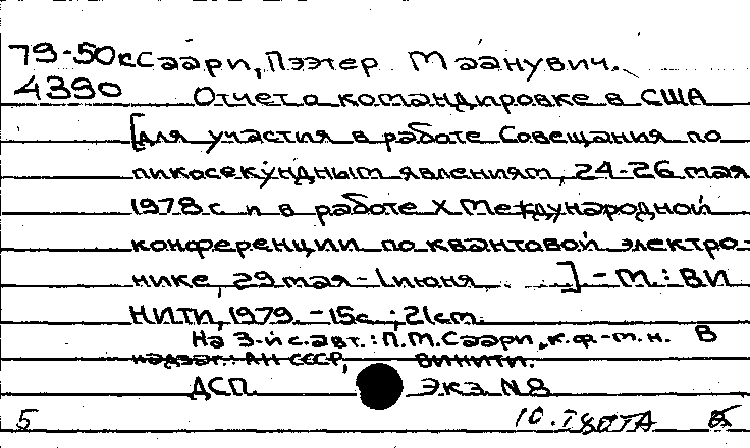 79-50к Саари, Пээтер Маанувич.
4390 Отчет о командировке в США
[для участия в работе Совещания по
пикосекундным явлениям, 24-26 мая
1978 г. и в работе X Международной
конференции по квантовой электро-
нике, 29 мая - 1 июня ...] - М.: ВИ
НИТИ, 1979. - 15с.; 21см.
На 3-й с. авт.: П.М.Саари, к.ф.-м.н. В
надзаг.: АН СССР, ВИНИТИ.
ДСП Экз. N8
5